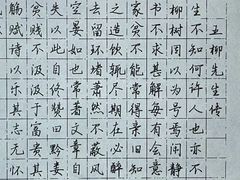 五柳先生传
生不知何许人也亦不
柳树因以为号焉闲静
书不求甚解每有会意
家贫不能常得亲旧知
之造饮辄尽期在必醉
去留环堵萧然不蔽风
空晏如也常著文章自
失以此自终赞曰黔娄
贫贱不汲汲于富贵其
觞赋诗以乐其志无怀